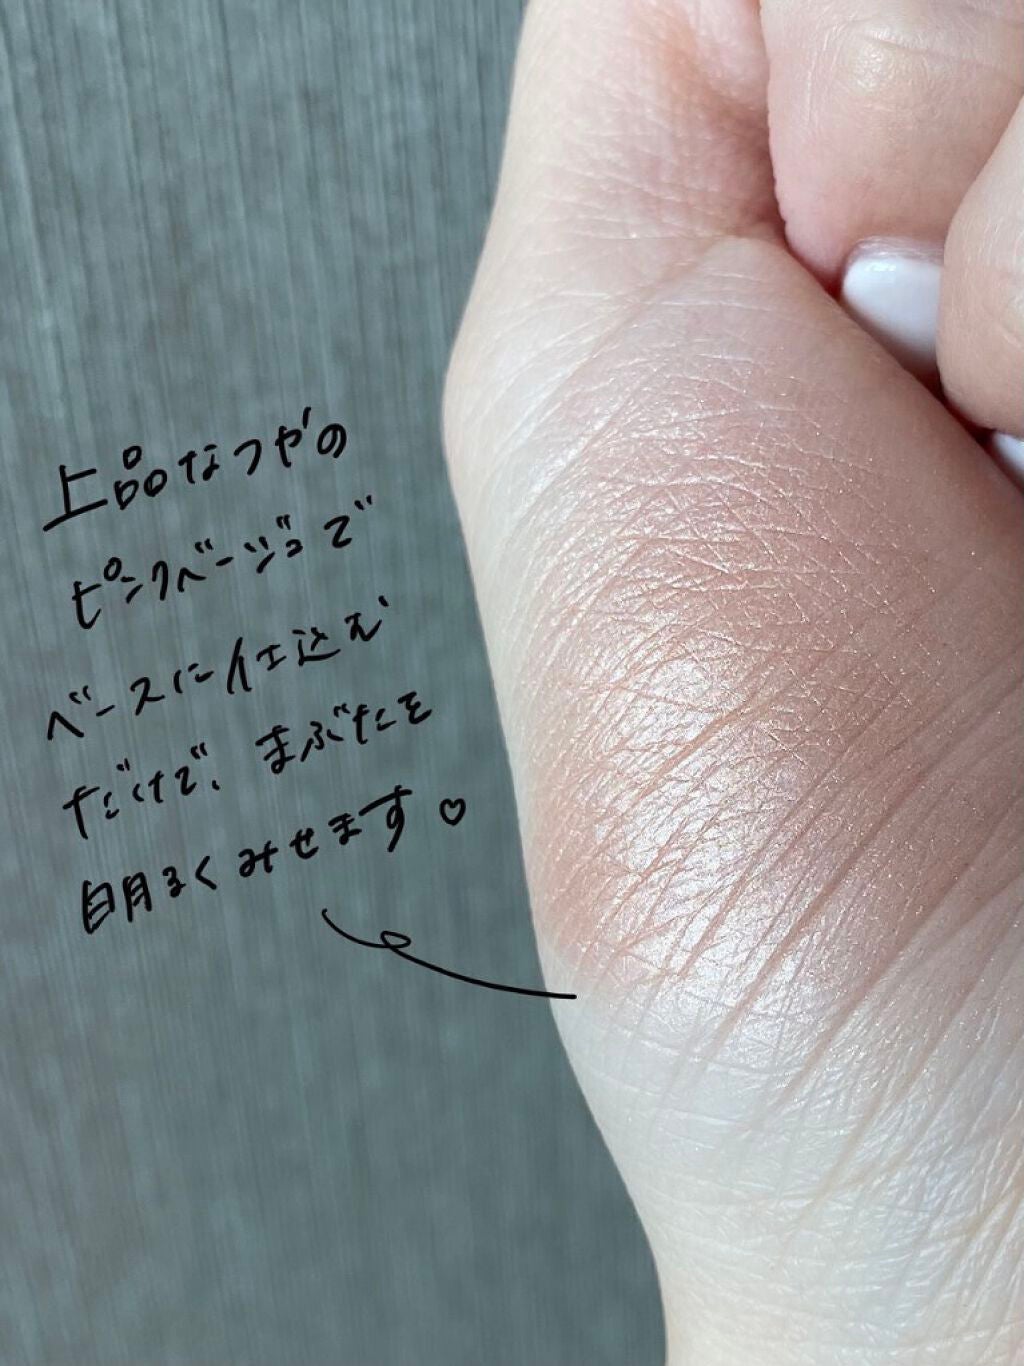 上品なつやの
ピンクベージュで
ベースに仕込む
だけで、まぶたを
明るくみせます♡